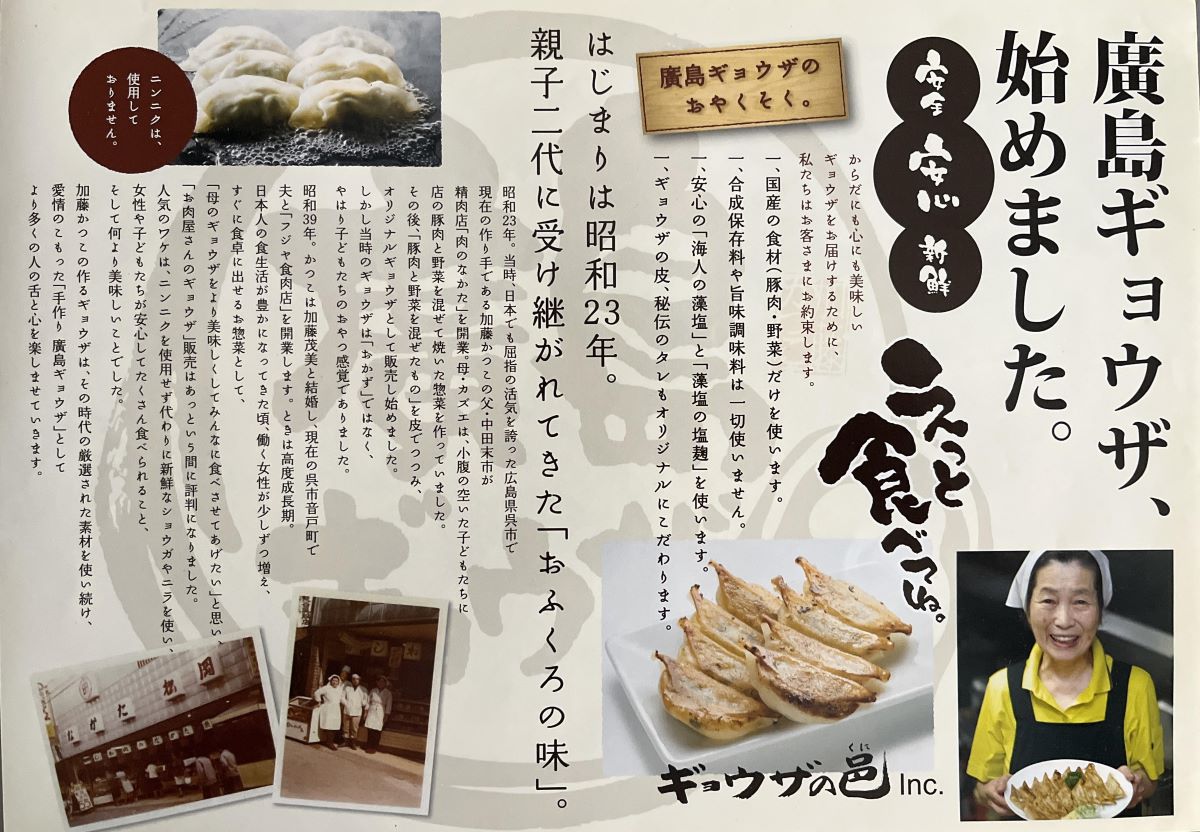 廣島ギョウザ、
始めました。
安全
安心
新鮮
えっと
食べてね。
廣島ギョウザの
おやくそく。
からだにも心にも美味しい
ギョウザをお届けするために、
私たちはお客さまにお約束します。
一、国産の食材（豚肉・野菜）だけを使います。
一、合成保存料や旨味調味料は一切使いません。
一、安心の「海人の藻塩」と「藻塩の塩麹」を使います。
一、ギョウザの皮、秘伝のタレもオリジナルにこだわります。
はじまりは昭和23年。
親子二代に受け継がれてきた「おふくろの味」。
昭和23年。当時、日本でも屈指の活気を誇った広島県呉市で
現在の作り手である加藤かつこの父・中田末市が
精肉店「肉のなかた」を開業。母・カズエは、小腹の空いた子どもたちに
店の豚肉と野菜を混ぜて焼いた惣菜を作っていました。
その後、「豚肉と野菜を混ぜたもの」を皮でつつみ、
オリジナルギョウザとして販売し始めました。
しかし当時のギョウザは「おかず」ではなく、
やはり子どもたちのおやつ感覚でありました。
昭和39年。かつこは加藤茂美と結婚し、現在の呉市音戸町で
夫と「フジヤ食肉店」を開業します。ときは高度成長期。
日本人の食生活が豊かになってきた頃、働く女性が少しずつ増え、
すぐに食卓に出せるお惣菜として、
「母のギョウザをより美味しくしてみんなに食べさせてあげたい」と思い、
「お肉屋さんのギョウザ」販売はあっという間に評判になりました。
人気のワケは、ニンニクを使用せず代わりに新鮮なショウガやニラを使い、
女性や子どもたちが安心してたくさん食べられること、
そして何より美味しいことでした。
加藤かつこの作るギョウザは、その時代の厳選された素材を使い続け、
愛情のこもった「手作り 廣島ギョウザ」として
より多くの人の舌と心を楽しませていきます。
ニンニクは、
使用して
おりません。
くに
ギョウザの邑 Inc.